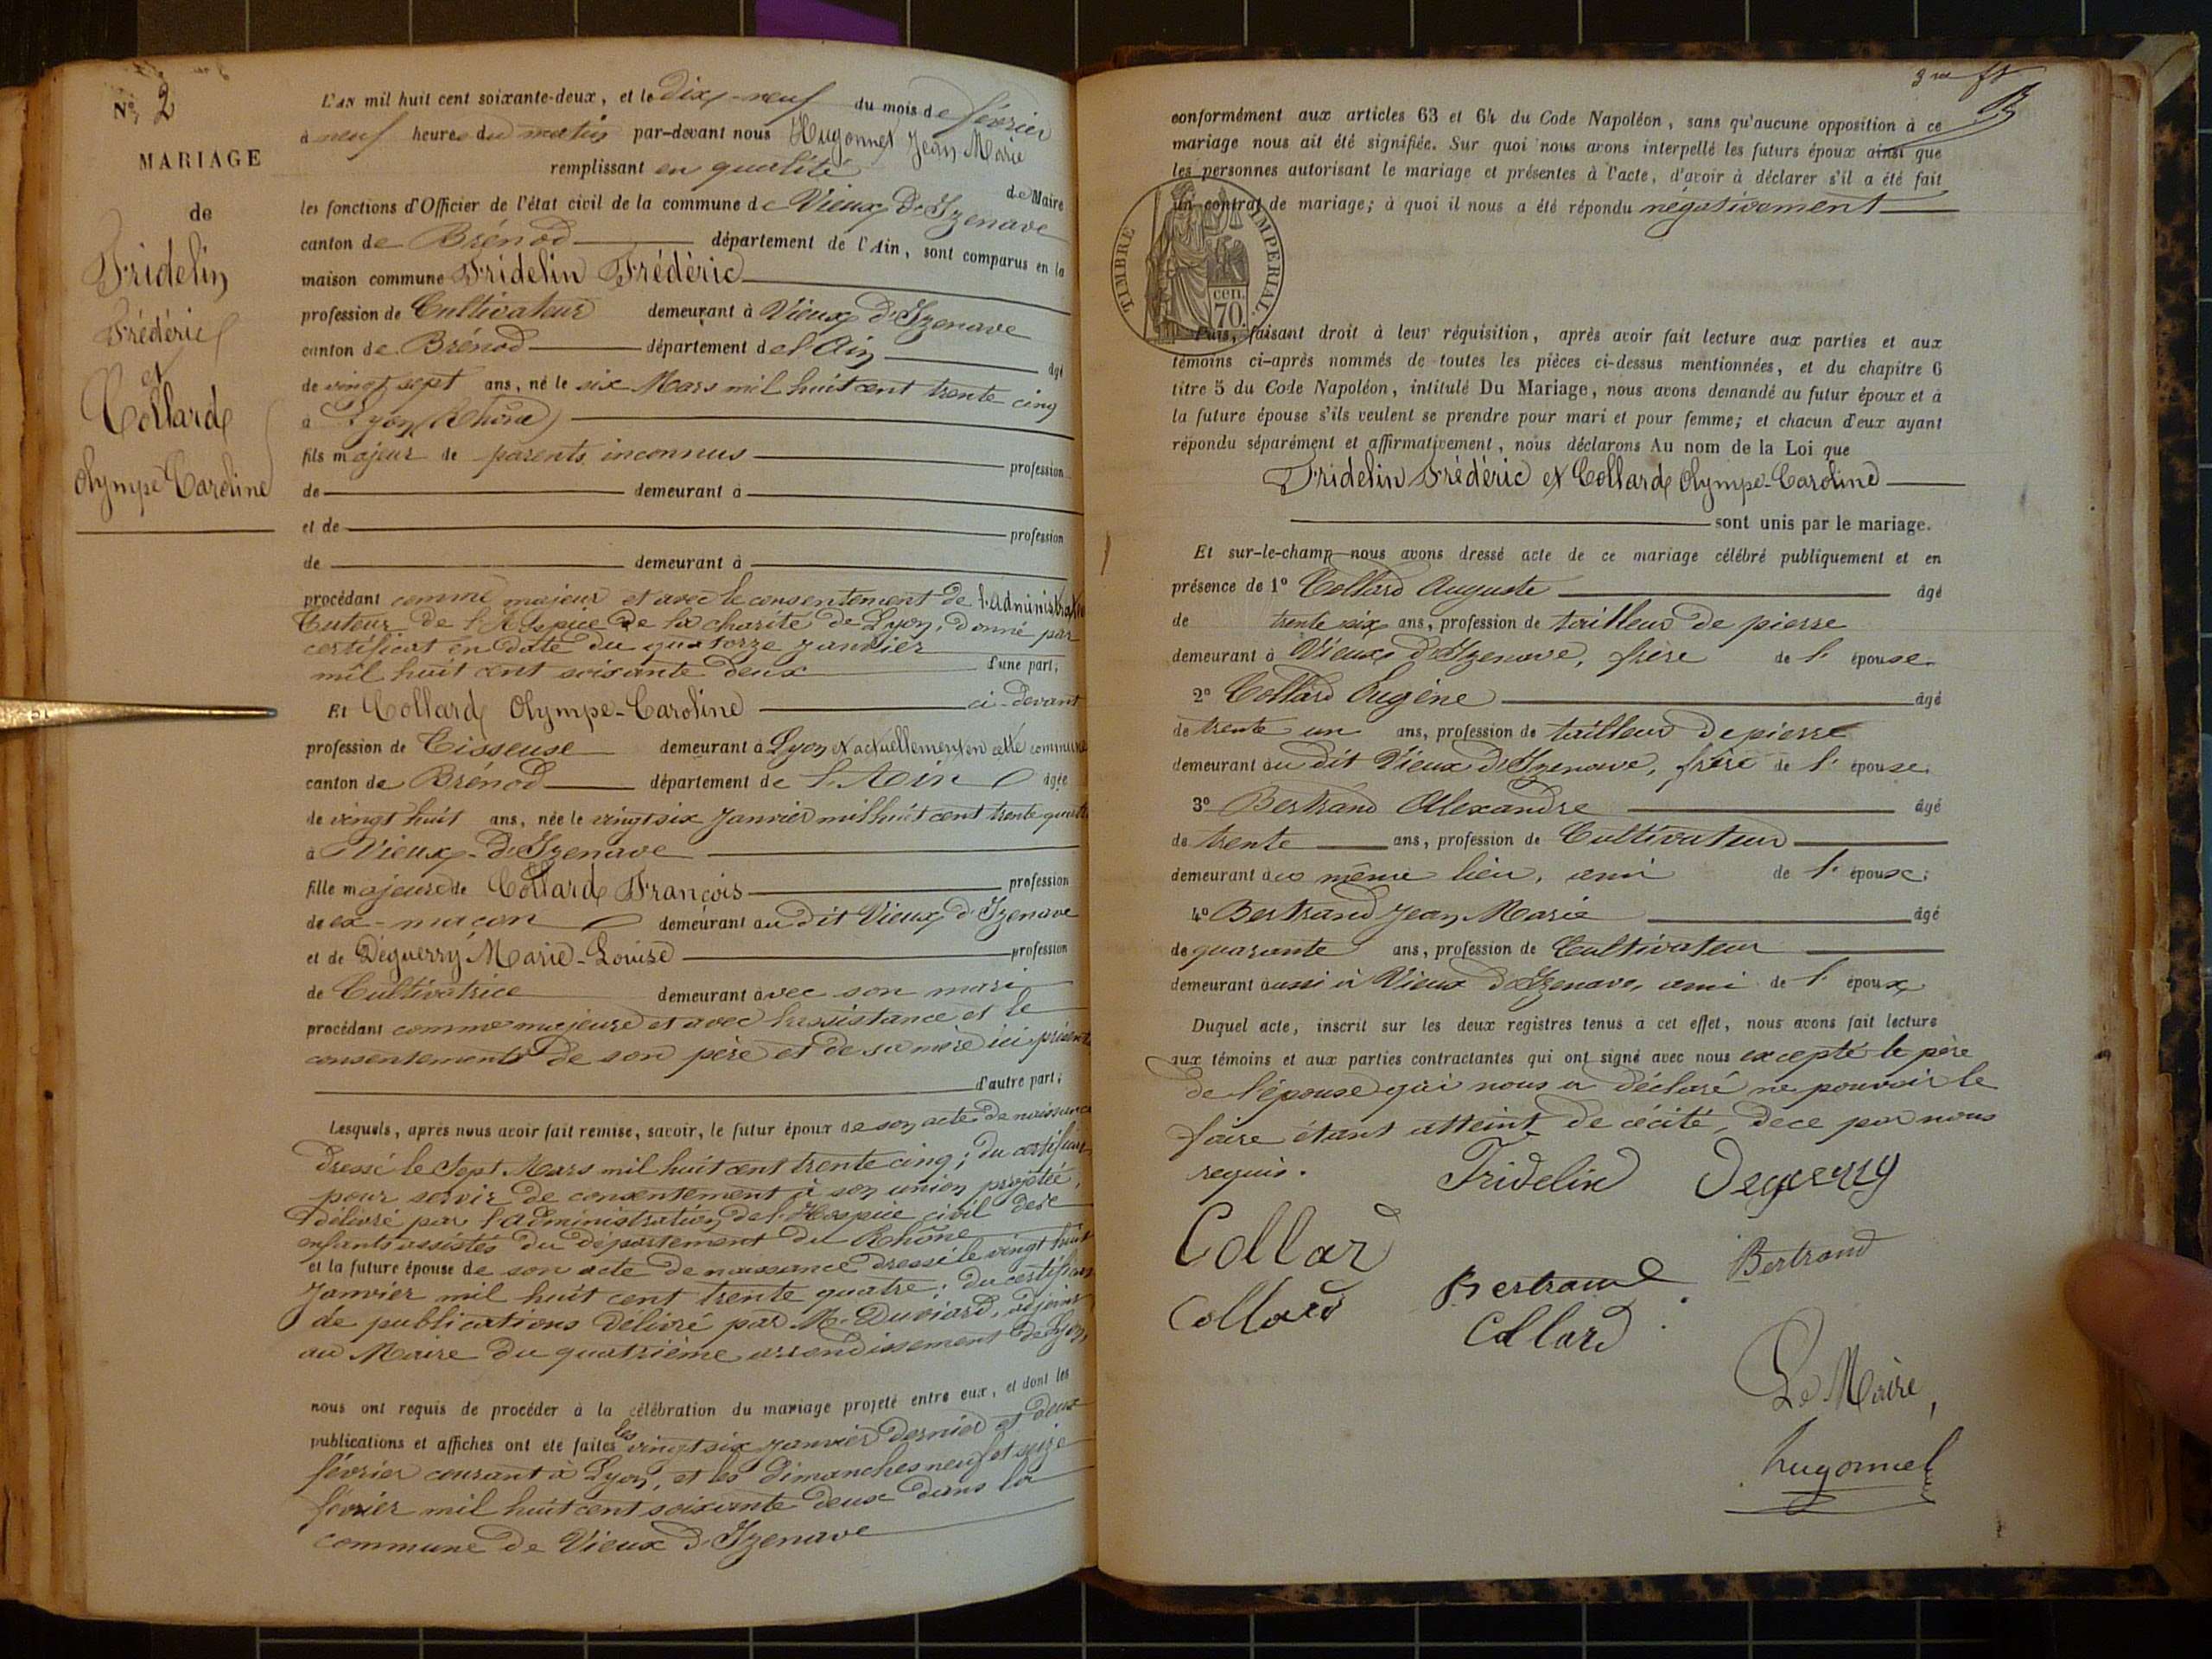 N° 2
MARIAGE
de
Fridelin
Frédéric
et
Collard
Olympe-Caroline
L'AN mil huit cent soixante-deux, et le dix-neuf du mois de février
à neuf heures du matin par-devant nous Hugonnet Jean Marie
remplissant en qualité de Maire
les fonctions d'Officier de l'état civil de la commune de Vieux d'Izenave
canton de Brénod département de l'Ain, sont comparus en la
maison commune Fridelin Frédéric
profession de Cultivateur demeurant à Vieux d'Izenave
canton de Brénod département de l'Ain âgé
de vingt sept ans, né le six Mars mil huit cent trente cinq
à Lyon (Rhône)
fils majeur de parents inconnus profession
de demeurant à
et de profession
de demeurant à
procédant comme majeur et avec le consentement de l'Administration
Tuteur de l'Hospice de la charité de Lyon, donné par
certificat en date du quatorze janvier
mil huit cent soixante deux d'une part;
Et Collard Olympe-Caroline ci-devant
profession de Tisseuse demeurant à Lyon et actuellement en cette commune
canton de Brénod département de l'Ain âgée
de vingt huit ans, née le vingt six Janvier mil huit cent trente quatre
à Vieux-d'Izenave
fille majeure de Collard François profession
de ex-maçon demeurant au dit Vieux d'Izenave
et de Déguerry Marie-Louise profession
de Cultivatrice demeurant avec son mari
procédant comme majeure et avec l'assistance et le
consentement de son père et de sa mère ici présents
d'autre part;
Lesquels, après nous avoir fait remise, savoir, le futur époux de son acte de naissance
dressé le Sept Mars mil huit cent trente cinq; du certificat
pour servir de consentement à son union projetée,
délivré par l'administration de l'Hospice civil des
enfants assistés du département du Rhône
et la future épouse de son acte de naissance dressé le vingt huit
Janvier mil huit cent trente quatre; du certificat
de publications délivré par Mr. Duviard, adjoint
au Maire du quatrième arrondissement de Lyon
nous ont requis de procéder à la célébration du mariage projeté entre eux, et dont les
publications et affiches ont été faites les vingt six janvier dernier et deux
février courant à Lyon, et les dimanches neuf et seize
février mil huit cent soixante deux dans la
commune de Vieux d'Izenave
conformément aux articles 63 et 64 du Code Napoléon, sans qu'aucune opposition à ce
mariage nous ait été signifiée. Sur quoi nous avons interpellé les futurs époux ainsi que
les personnes autorisant le mariage et présentes à l'acte, d'avoir à déclarer s'il a été fait
un contrat de mariage; à quoi il nous a été répondu négativement
TIMBRE IMPERIAL
cen.
70.
Puis, faisant droit à leur réquisition, après avoir fait lecture aux parties et aux
témoins ci-après nommés de toutes les pièces ci-dessus mentionnées, et du chapitre 6
titre 5 du Code Napoléon, intitulé Du Mariage, nous avons demandé au futur époux et à
la future épouse s'ils veulent se prendre pour mari et pour femme; et chacun d'eux ayant
répondu séparément et affirmativement, nous déclarons Au nom de la Loi que
Fridelin Frédéric et Collard Olympe-Caroline
sont unis par le mariage.
Et sur-le-champ nous avons dressé acte de ce mariage célébré publiquement et en
présence de 1° Collard Auguste âgé
de trente six ans, profession de tailleur de pierre
demeurant à Vieux d'Izenave, frère de l'épouse
2° Collard Eugène âgé
de trente un ans, profession de tailleur de pierre
demeurant au dit Vieux d'Izenave, frère de l'épouse
3° Bertrand Alexandre âgé
de trente ans, profession de Cultivateur
demeurant au même lieu, ami de l'épouse;
4° Bertrand Jean Marie âgé
de quarante ans, profession de Cultivateur
demeurant aussi à Vieux d'Izenave, ami de l'époux
Duquel acte, inscrit sur les deux registres tenus à cet effet, nous avons fait lecture
aux témoins et aux parties contractantes qui ont signé avec nous excepté le père
de l'épouse qui nous a déclaré ne pouvoir le
faire étant atteint de cécité, de ce par nous
requis.
Fridelin Deguerry
Collar
Bertrand
Bertrand
Collard
Collard
Le Maire,
hugonnet